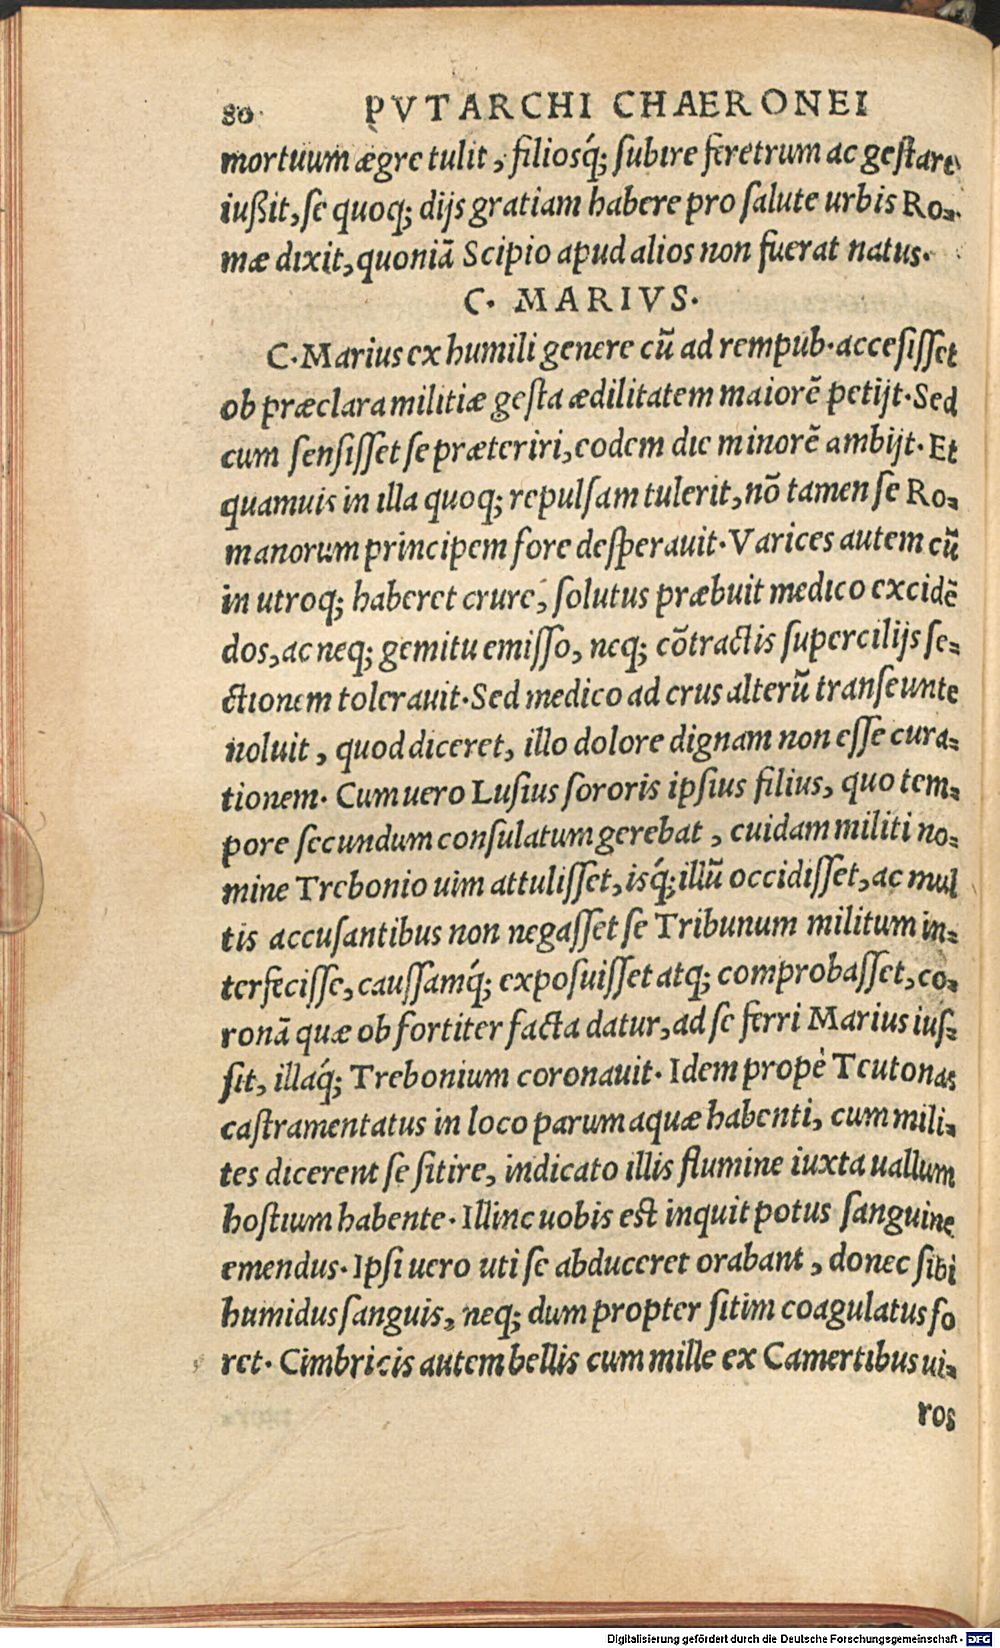 80 PVTARCHI CHAERONEI
mortuum ægre tulit, filiosq́; subire feretrum ac gestare
iußit, se quoq; dijs gratiam habere pro salute urbis Ro-
mæ dixit, quoniã Scipio apud alios non fuerat natus.
C. MARIVS.
C. Marius ex humili genere cũ ad rempub. accesisset
ob præclara militiæ gesta ædilitatem maiorẽ petijt. Sed
cum sensisset se præteriri, eodem die minorẽ ambijt. Et
quamuis in illa quoq; repulsam tulerit, nõ tamen se Ro-
manorum principem fore desperauit. Varices autem cũ
in utroq; haberet crure, solutus præbuit medico excidẽ
dos, ac neq; gemitu emisso, neq; cõtractis supercilijs se-
ctionem tolerauit. Sed medico ad crus alterũ transeunte
noluit, quod diceret, illo dolore dignam non esse cura-
tionem. Cum uero Lusius sororis ipsius filius, quo tem-
pore secundum consulatum gerebat, cuidam militi no-
mine Trebonio uim attulisset, isq́; illũ occidisset, ac mul
tis accusantibus non negasset se Tribunum militum in-
terfecisse, caussamq́; exposuisset atq; comprobasset, co-
ronã quæ ob fortiter facta datur, ad se ferri Marius ius-
sit, illaq́; Trebonium coronauit. Idem propè Teutonas
castramentatus in loco parum aquæ habenti, cum mili-
tes dicerent se sitire, indicato illis flumine iuxta uallum
hostium habente. Illinc uobis est inquit potus sanguine
emendus. Ipsi uero uti se abduceret orabant, donec sibi
humidus sanguis, neq; dum propter sitim coagulatus fo
ret. Cimbricis autem bellis cum mille ex Camertibus ui-
ros
Digitalisierung gefördert durch die Deutsche Forschungsgemeinschaft - DFG